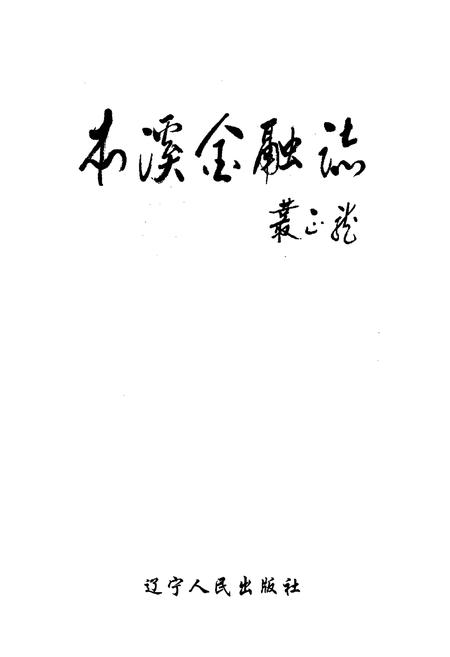 本溪金融誌
叢正龙
辽宁人民出版社